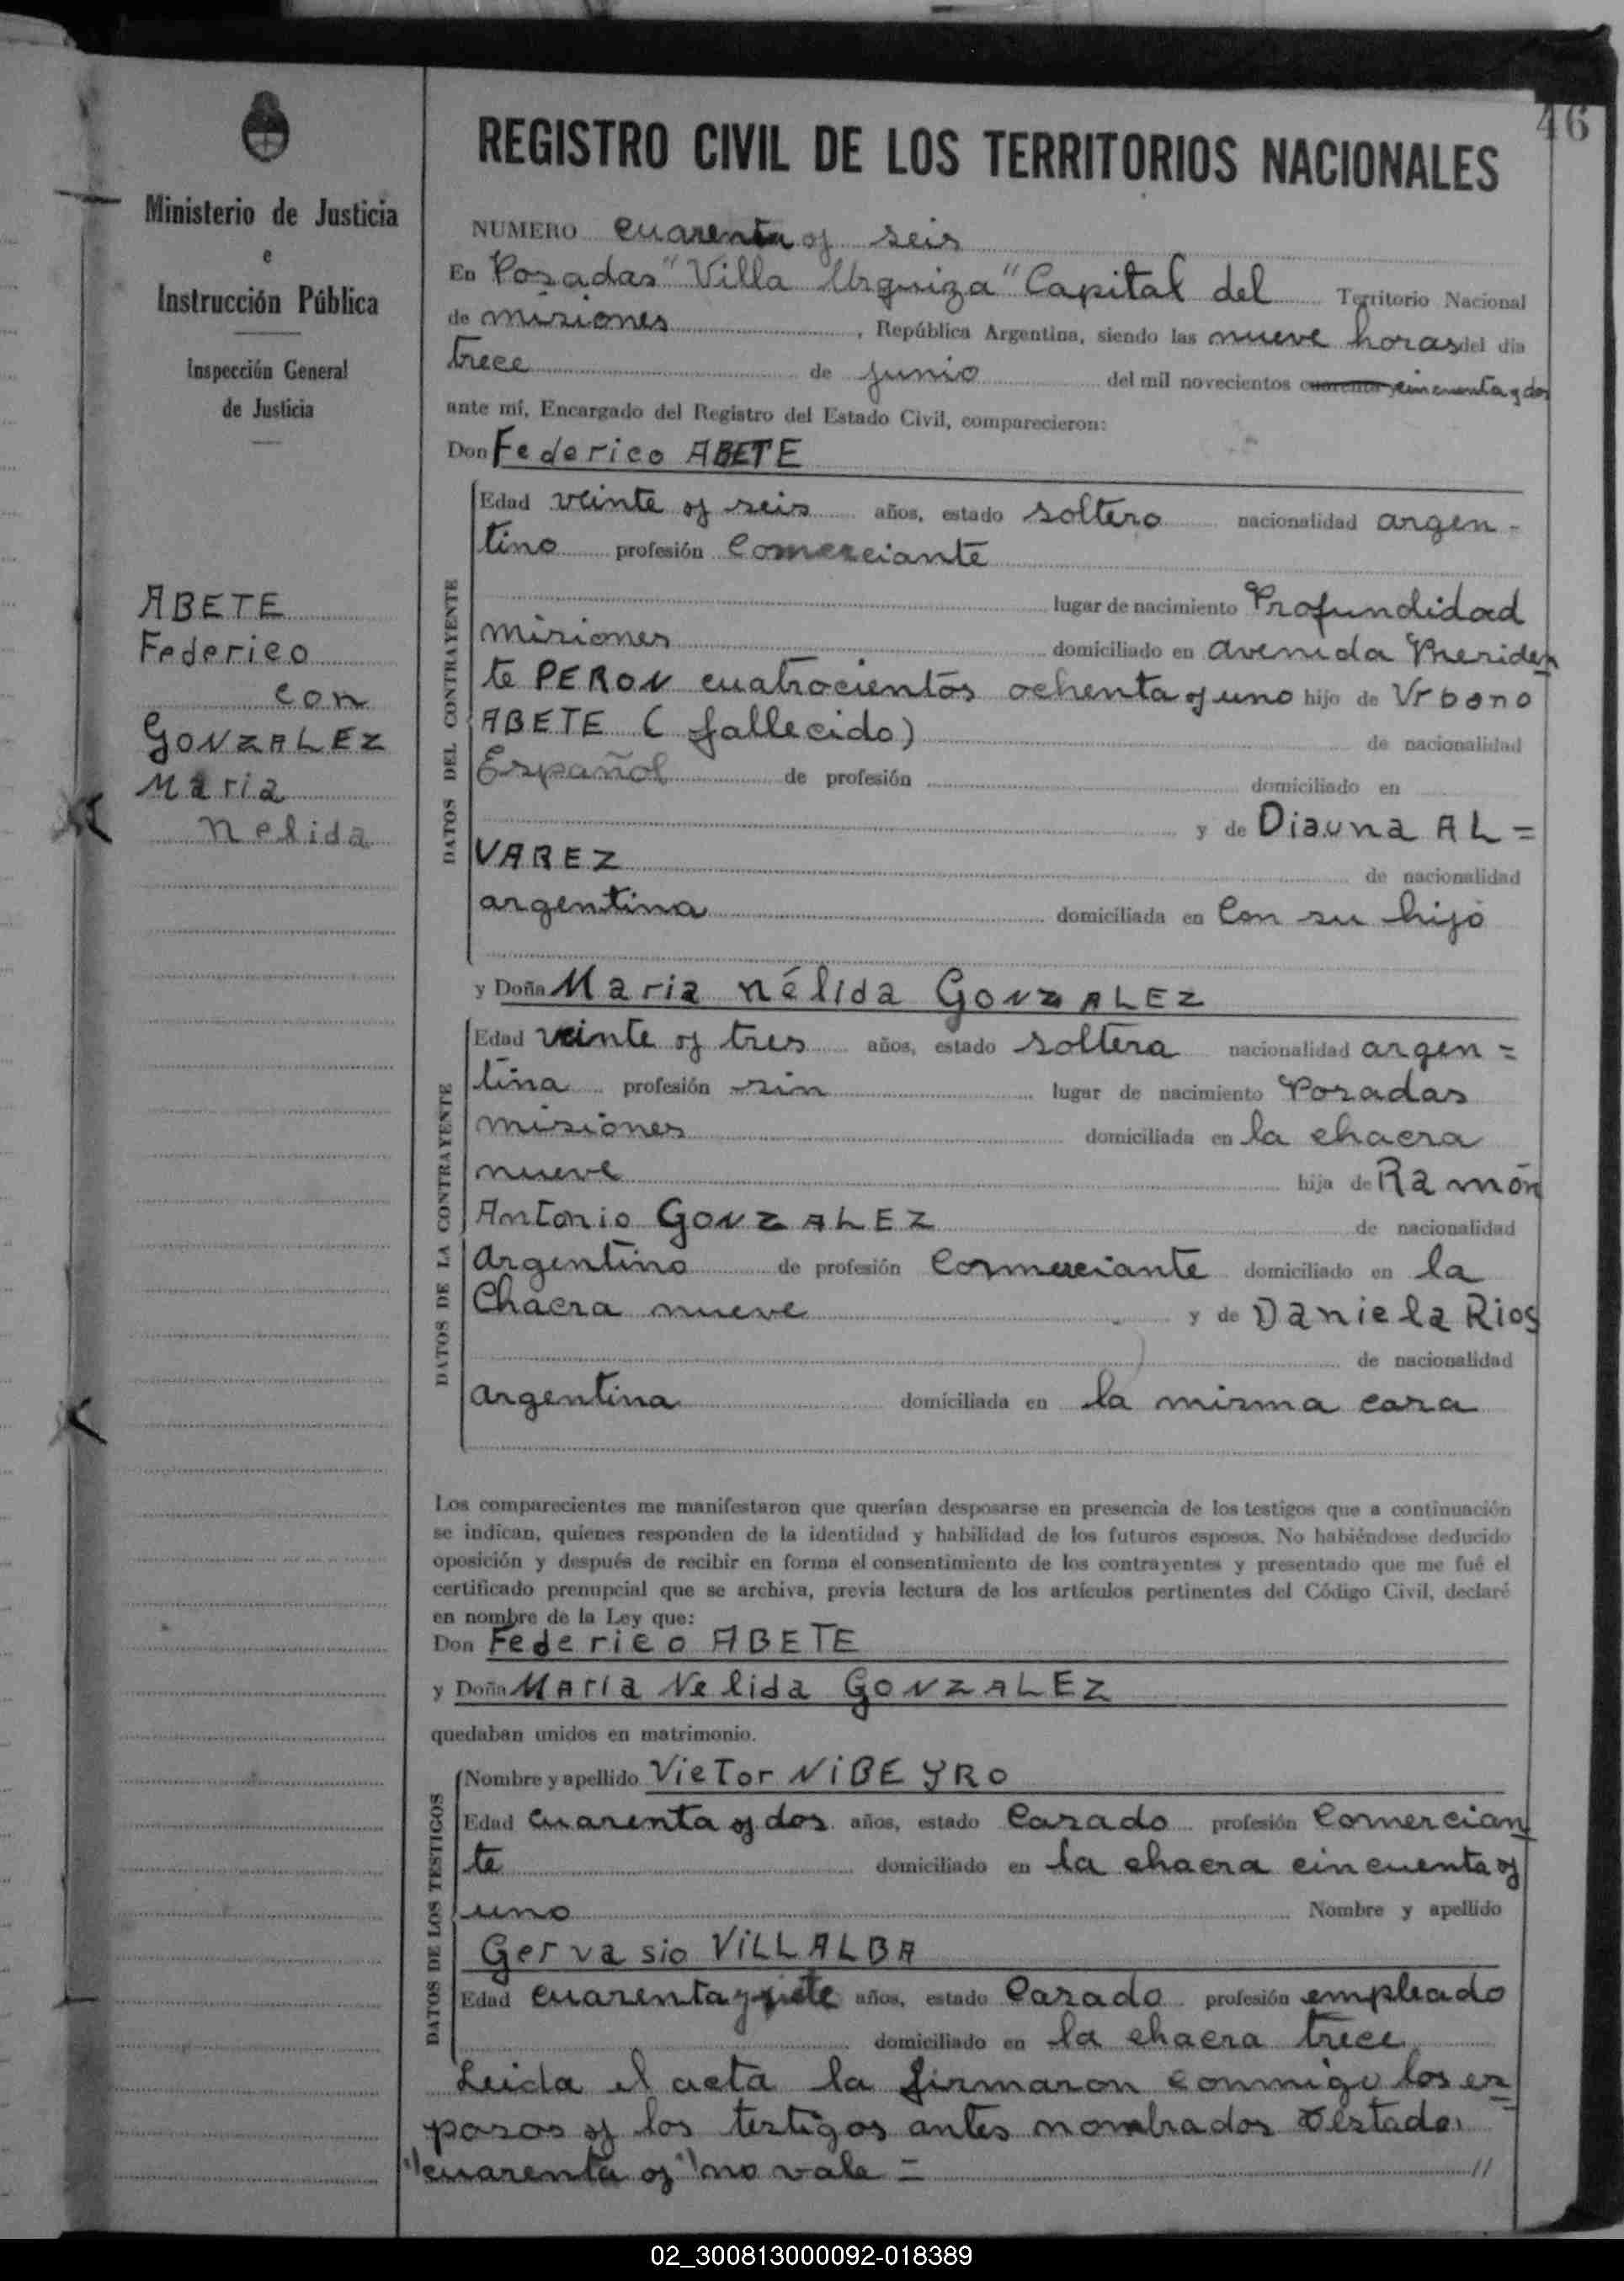 46
Ministerio de Justicia
e
Instrucción Pública
Inspección General
de Justicia
ABETE
Federico
con
GONZALEZ
Maria
Nelida
REGISTRO CIVIL DE LOS TERRITORIOS NACIONALES
NUMERO cuarenta y seis
En Posadas "Villa Urquiza" Capital del Territorio Nacional
de misiones, República Argentina, siendo las nueve horas del día
trece de junio del mil novecientos cuarenta y cincuenta y dos
ante mí, Encargado del Registro del Estado Civil, comparecieron:
Don Federico ABETE
DATOS DEL CONTRAYENTE
Edad veinte y seis años, estado soltero nacionalidad argen-
tino profesión Comerciante
lugar de nacimiento Profundidad
misiones domiciliado en avenida Presiden
te PERON cuatrocientos ochenta y uno hijo de Urbano
ABETE (fallecido) de nacionalidad
Español de profesión domiciliado en
y de Diauna AL=
VAREZ de nacionalidad
argentina domiciliada en Con su hijo
y Doña Maria nélida GONZALEZ
DATOS DE LA CONTRAYENTE
Edad veinte y tres años, estado soltera nacionalidad argen=
tina profesión sin lugar de nacimiento Posadas
misiones domiciliada en la chacra
nueve hija de Ramón
Antonio GONZALEZ de nacionalidad
Argentino de profesión Comerciante domiciliado en la
Chacra nueve y de Daniela Rios
de nacionalidad
argentina domiciliada en la misma casa
Los comparecientes me manifestaron que querían desposarse en presencia de los testigos que a continuación
se indican, quienes responden de la identidad y habilidad de los futuros esposos. No habiéndose deducido
oposición y después de recibir en forma el consentimiento de los contrayentes y presentado que me fué el
certificado prenupcial que se archiva, previa lectura de los artículos pertinentes del Código Civil, declaré
en nombre de la Ley que:
Don Federico ABETE
y Doña Maria Nelida GONZALEZ
quedaban unidos en matrimonio.
DATOS DE LOS TESTIGOS
Nombre y apellido Victor NiBEYRO
Edad Cuarenta y dos años, estado Casado profesión Comercian
te domiciliado en la chacra cincuenta y
uno Nombre y apellido
Gervasio VILLALBA
Edad cuarenta y siete años, estado Casado profesión empleado
domiciliado en la chacra trece
Leida el acta la firmaron conmigo los es
posos y los testigos antes nombrados testado
"cuarenta y" no vale = //
02_300813000092-018389